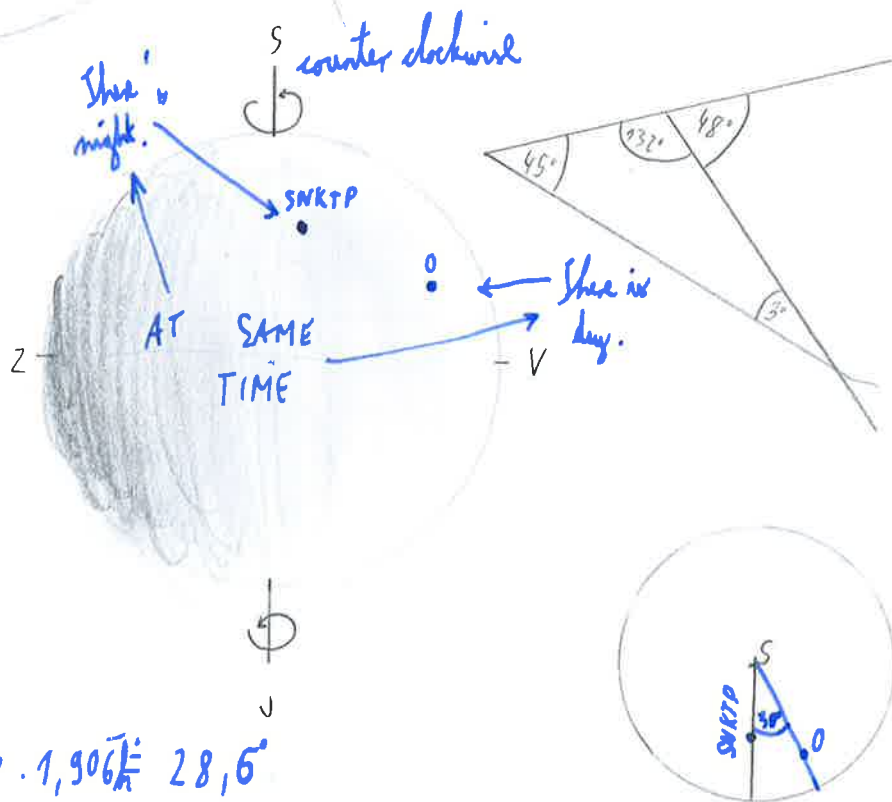 S
counter clockwise
There is
night.
SNKTP
O
There is
day.
AT SAME
TIME
Z
V
J
45°
132°
48°
3°
S
SNKTP
30°
O
. 1,906 28,6°